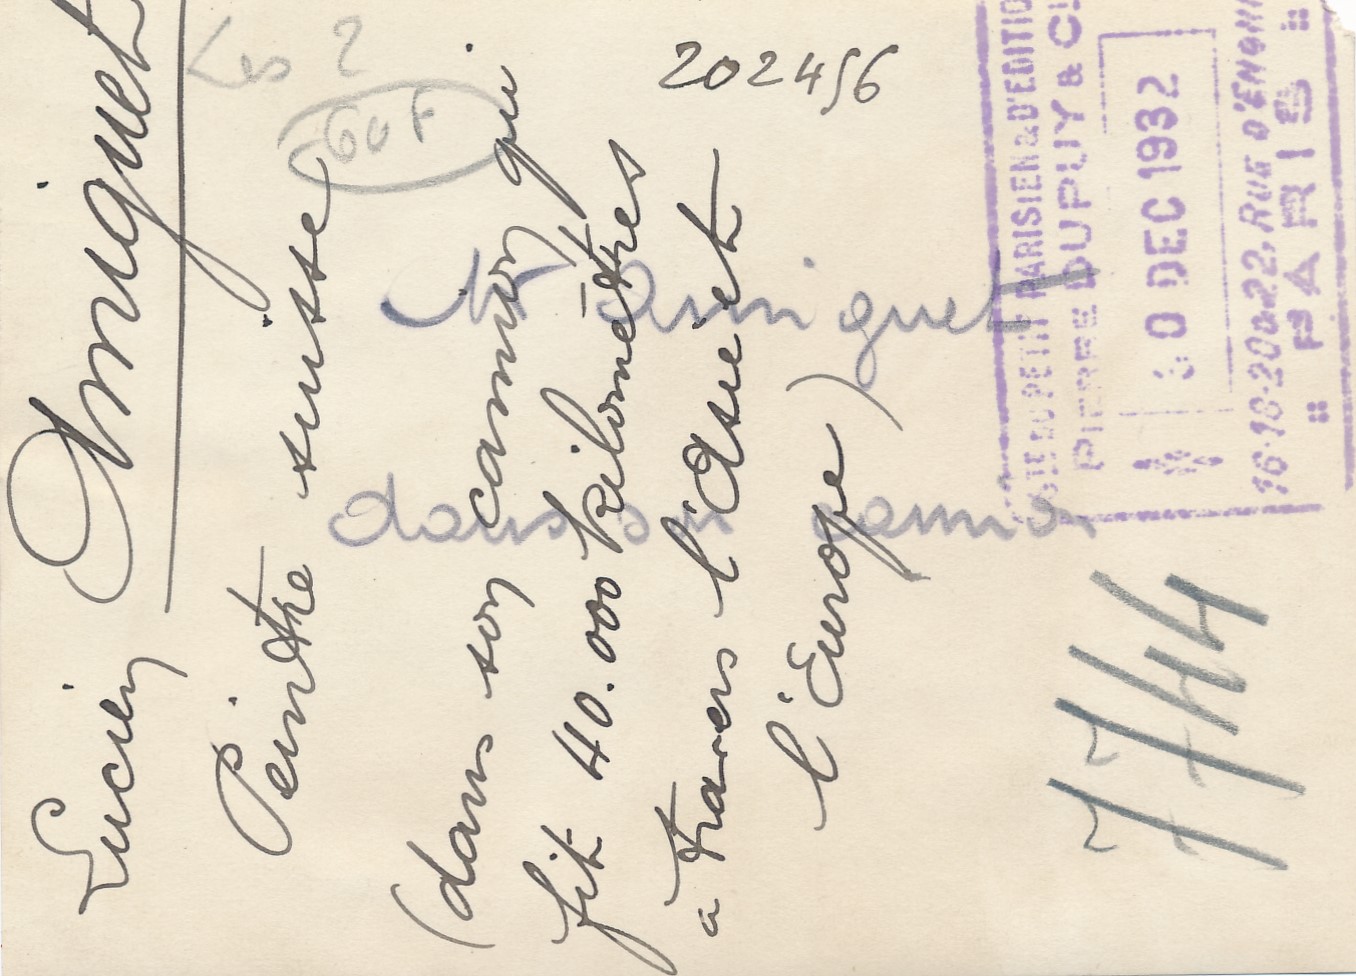 Lucien Amiguet
Peintre suisse
(dans son camion qui
fit 40.000 kilomètres
à travers l'Asie et
l'Europe)
Les 2
60 F
202456
Mr Amiguet
dans son camion
7744
STÉ DU PETIT PARISIEN & D'EDITIO
PIERRE DUPUY & C
30 DEC 1932
16-18-20 & 22, RUE D'ENGHI
PARIS